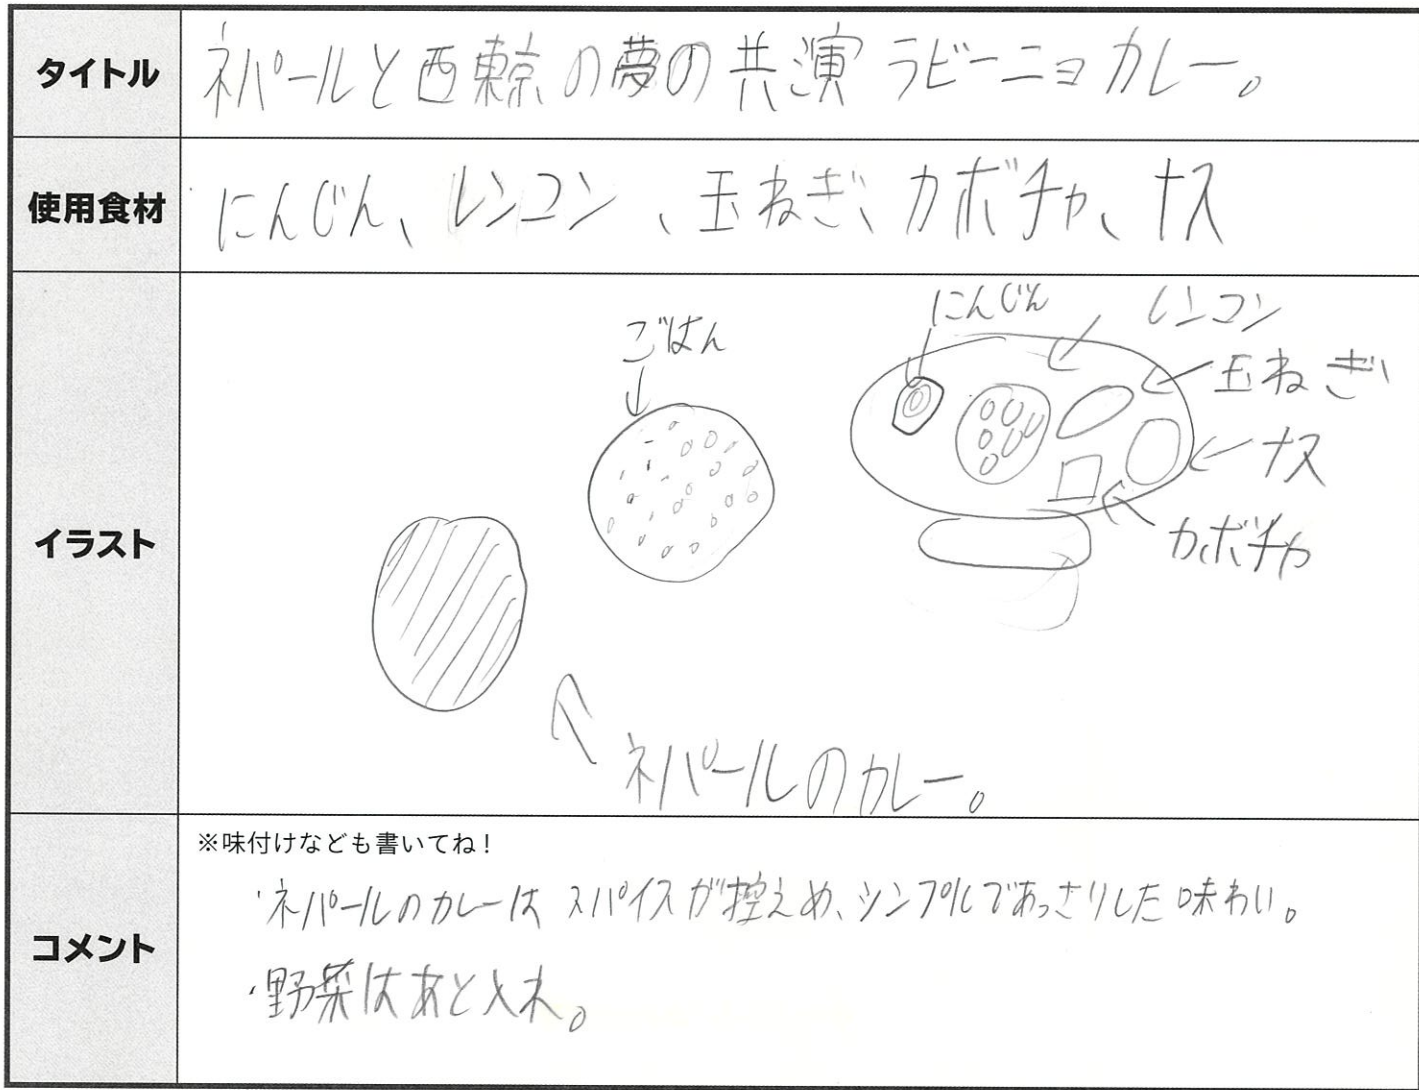 タイトル
ネパールと西東京の夢の共演 ラビーニョカレー。
使用食材
にんじん、レンコン、玉ねぎ、カボチャ、ナス
イラスト
にんじん
レンコン
ごはん
玉ねぎ
ナス
カボチャ
ネパールのカレー。
コメント
※味付けなども書いてね!
・ネパールのカレーはスパイスが控えめ、シンプルであっさりした味わい。
・野菜はあと入れ。